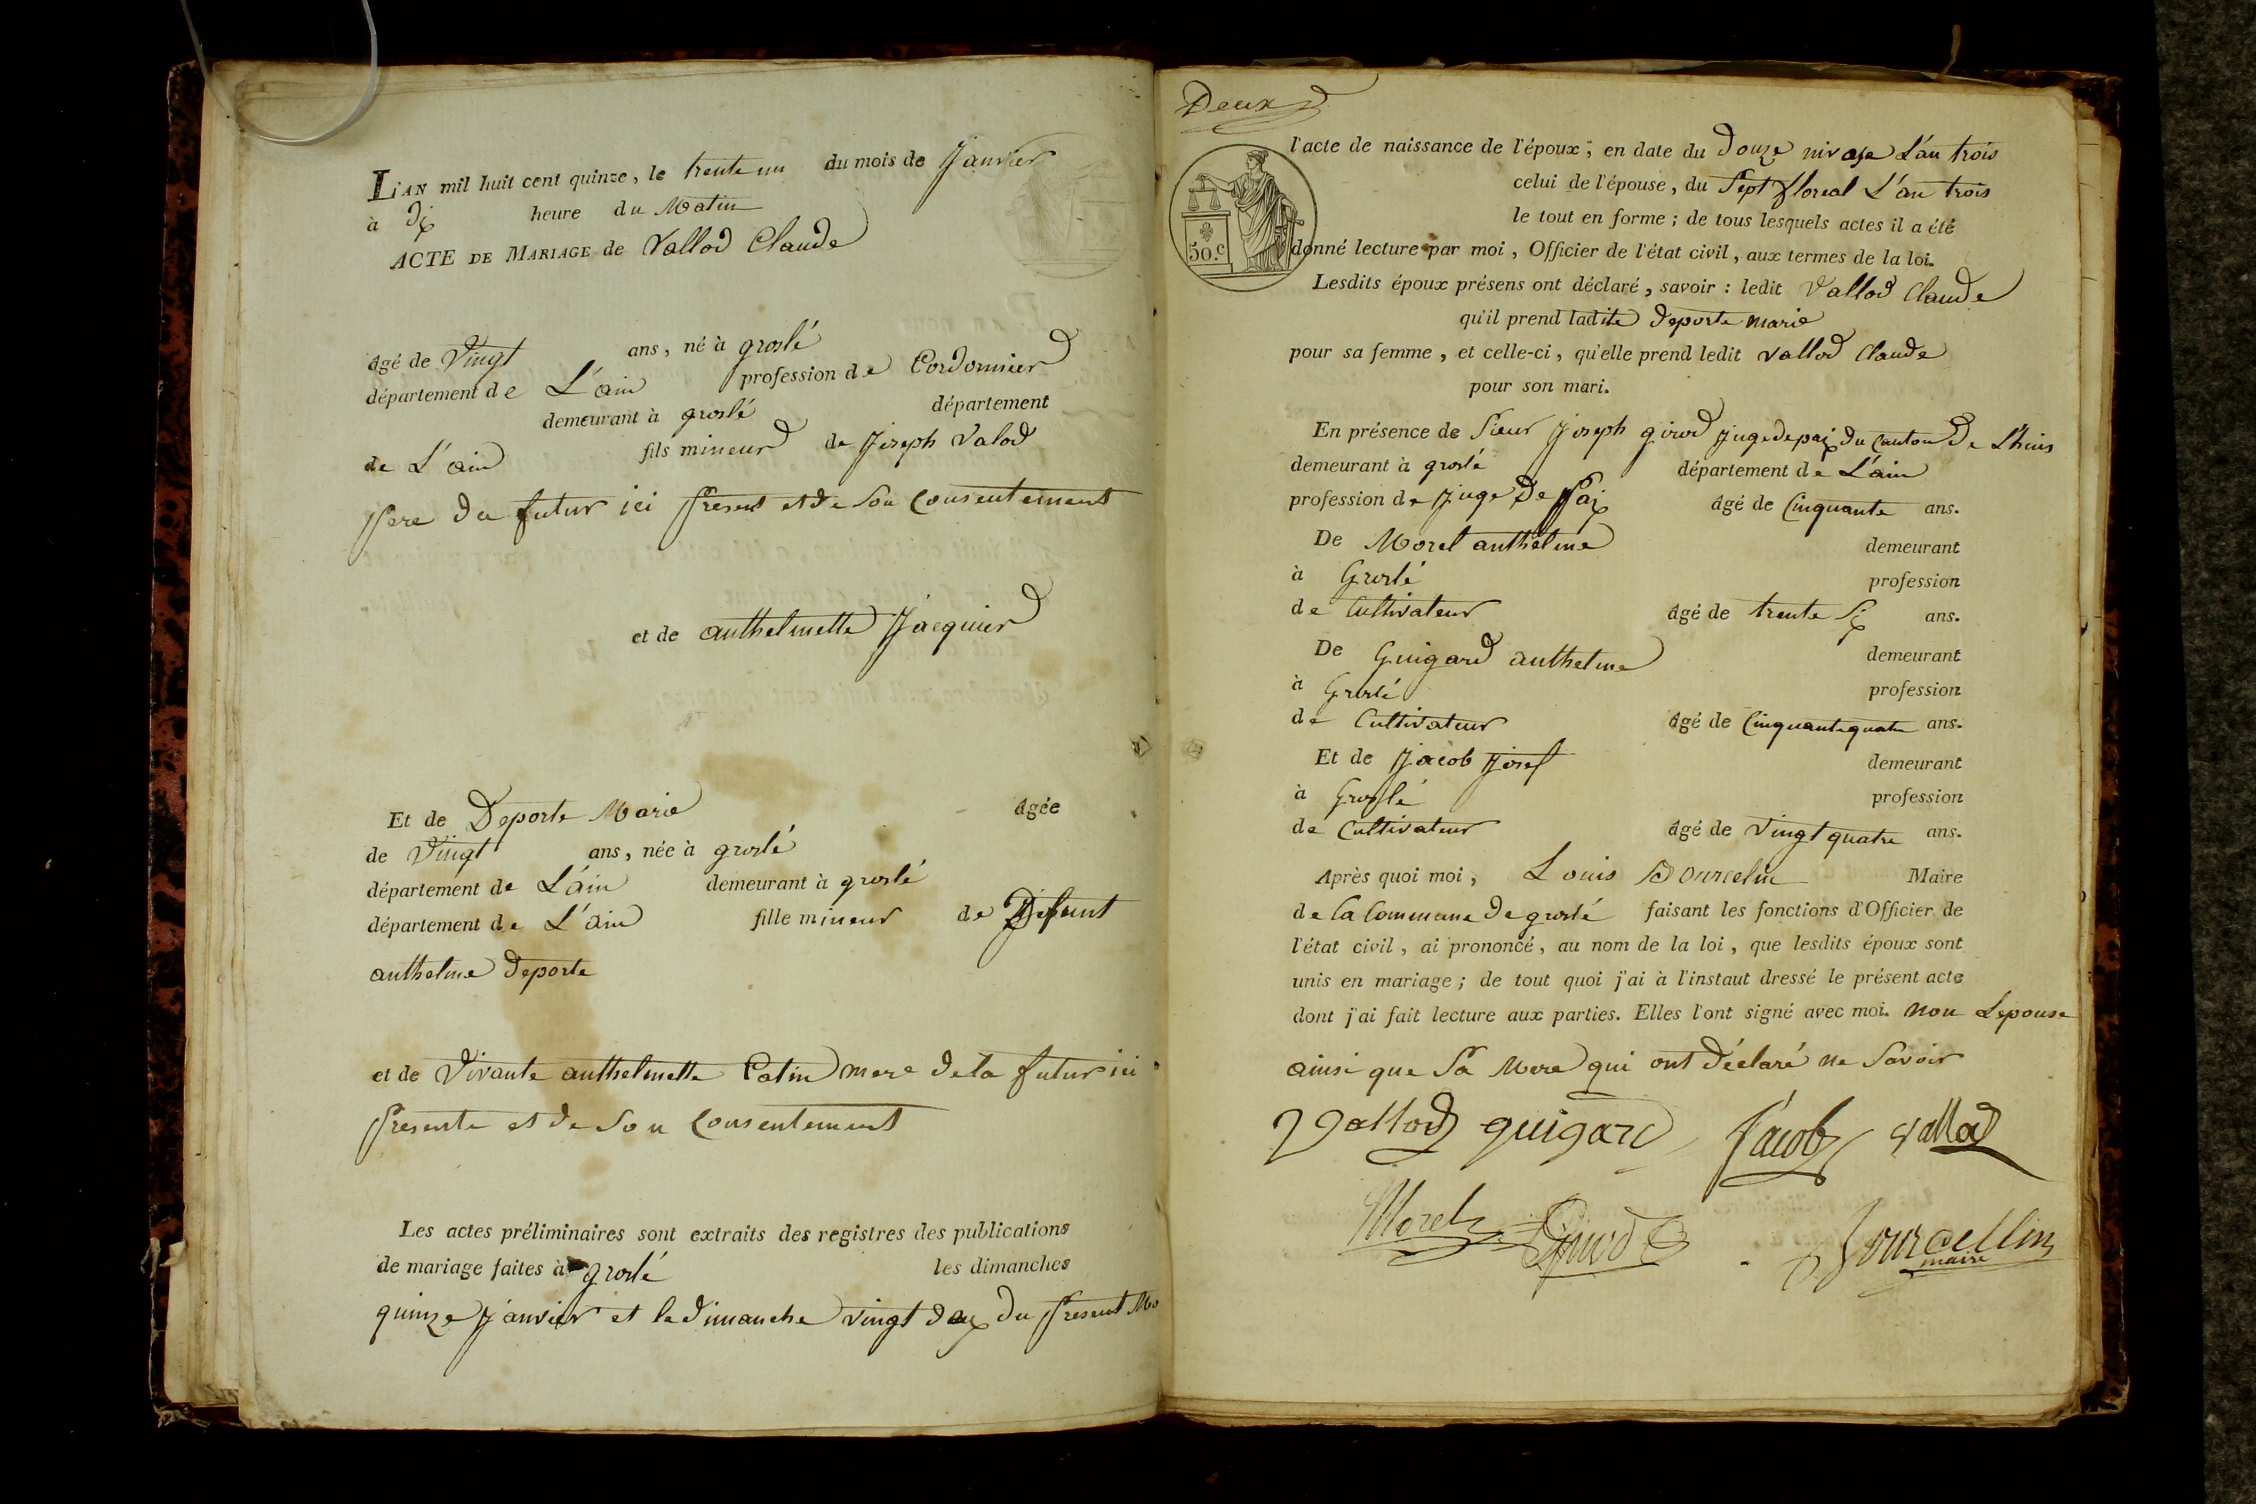 L'AN mil huit cent quinze, le trente un du mois de Janvier
à dix heure du Matin
ACTE DE MARIAGE de Vallod Claude
âgé de Vingt ans, né à groslé
département de L'ain profession de Cordonnier
demeurant à groslé département
de L'ain fils mineur de Joseph Valod
pere du futur ici present et de son Consentement
et de anthelmette Jacquier
Et de Deporte Marie âgée
de Vingt ans, née à groslé
département de L'ain demeurant à groslé
département de L'ain fille mineur de Défunt
anthelme deporte
et de Vivante anthelmette Catin mere de la futur ici
presente et de son Consentement
Les actes préliminaires sont extraits des registres des publications
de mariage faites à groslé les dimanches
quinze Janvier et le dimanche vingt deux du present Mo
Deux
l'acte de naissance de l'époux; en date du douze nivose L'an trois
50.c
celui de l'épouse, du Sept floreal L'an trois
le tout en forme; de tous lesquels actes il a été
donné lecture par moi, Officier de l'état civil, aux termes de la loi.
Lesdits époux présens ont déclaré, savoir: ledit Vallod Claude
qu'il prend ladite deporte marie
pour sa femme, et celle-ci, qu'elle prend ledit vallod Claude
pour son mari.
En présence de Sieur Joseph girod juge de paix du Canton de Lhuis
demeurant à groslé département de L'ain
profession de Juge de Paix âgé de Cinquante ans.
De Morel anthelme demeurant
à Groslé profession
de Cultivateur âgé de trente Six ans.
De Guigard anthelme demeurant
à Groslé profession
de Cultivateur âgé de Cinquante quatre ans.
Et de Jacob Josef demeurant
à Groslé profession
de Cultivateur âgé de vingt quatre ans.
Après quoi moi, Louis Bourcelin Maire
de la Commune de groslé faisant les fonctions d'Officier de
l'état civil, ai prononcé, au nom de la loi, que lesdits époux sont
unis en mariage; de tout quoi j'ai à l'instaut dressé le présent acte
dont j'ai fait lecture aux parties. Elles l'ont signé avec moi. non Lepouse
ainsi que Sa Mere qui ont déclaré ne Savoir
Vallod guigard Jacob vallod
Morel Girod Bourcellin
maire